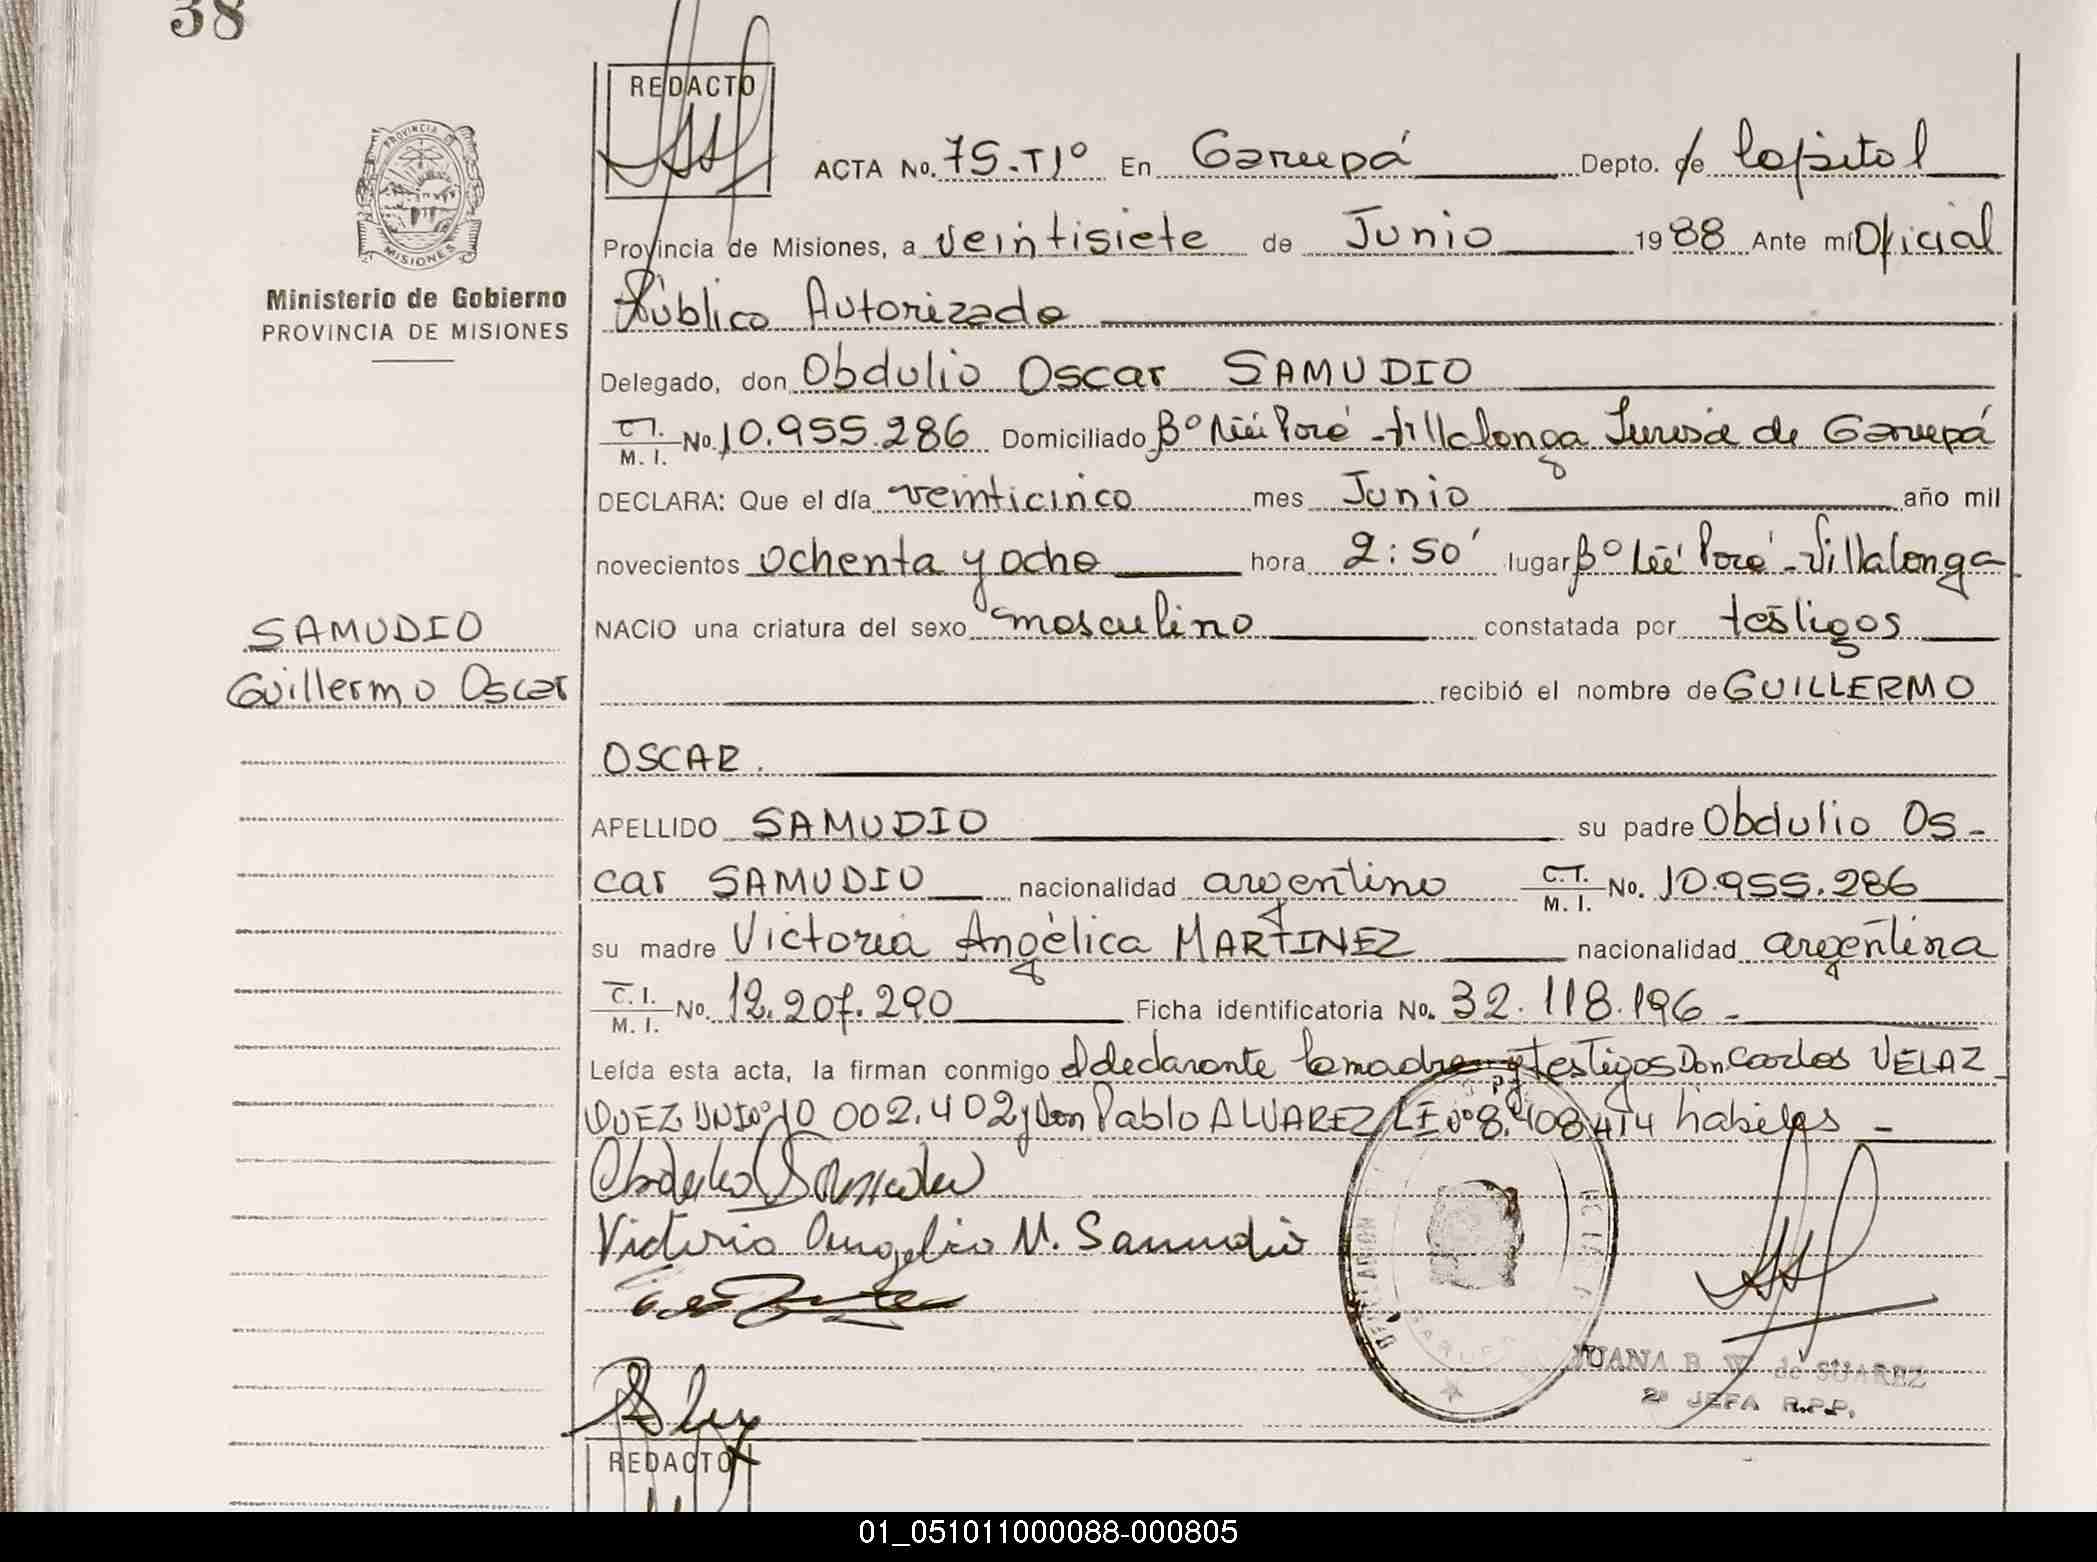 38
REDACTO
ACTA No. 75.TIº En Garupá Depto. de Capital
PROVINCIA DE MISIONES
Provincia de Misiones, a veintisiete de Junio 1988 Ante mi Oficial
Ministerio de Gobierno
PROVINCIA DE MISIONES
Público Autorizado
Delegado, don Obdulio Oscar SAMUDIO
C.I. M. I. No. 10.955.286 Domiciliado Bº Ñú Porá - Villalonga Jurisd. de Garupá
DECLARA: Que el día veinticinco mes Junio año mil
novecientos ochenta y ocho hora 2:50' lugar Bº Ñú Porá - Villalonga
SAMUDIO
Guillermo Oscar
NACIO una criatura del sexo masculino constatada por testigos
recibió el nombre de GUILLERMO
OSCAR.
APELLIDO SAMUDIO su padre Obdulio Os-
car SAMUDIO nacionalidad argentino C.I. M. I. No. 10.955.286
su madre Victoria Angélica MARTINEZ nacionalidad argentina
C.I. M. I. No. 12.207.290 Ficha identificatoria No. 32.118.196 -
Leída esta acta, la firman conmigo el declarante la madre y testigos Don Carlos VELAZ
QUEZ DNI Nº 10 002.402 y Don Pablo ALVAREZ LE Nº 8.408414 habiles -
Victoria Angelica M. Samudio
JUANA B. W de SUAREZ
2ª JEFA R.P.P.
REDACTO
01_051011000088-000805